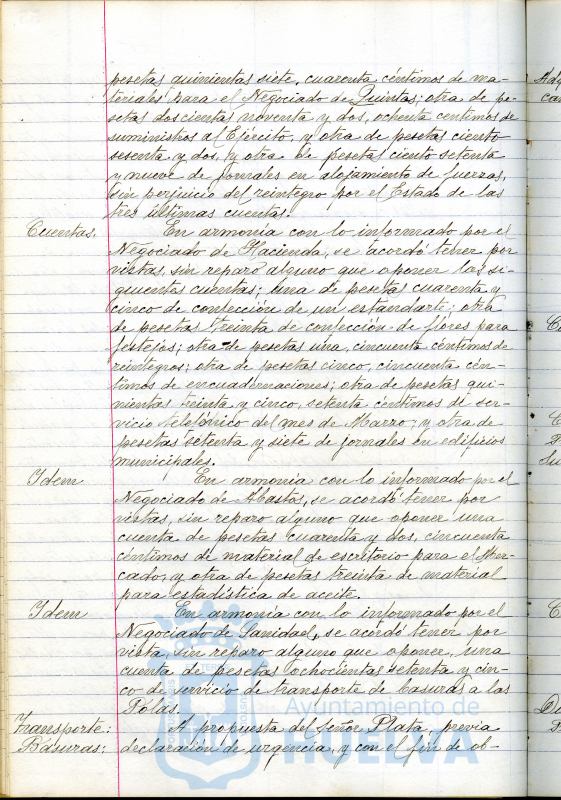 pesetas quinientas siete, cuarenta céntimos de ma-
teriales para el Negociado de Quintas; otra de pe-
setas doscientas noventa y dos, ochenta centimos de
suministros al Ejército, y otra de pesetas ciento
sesenta y dos, y otra de pesetas ciento setenta
y nueve de jornales en alojamiento de fuerzas,
sin perjuicio del reintegro por el Estado de las
tres últimas cuentas.
Cuentas. En armonia con lo informado por el
Negociado de Hacienda, se acordó tener por
vistas, sin reparo alguno que oponer las si-
guientes cuentas; una de pesetas cuarenta y
cinco de confección de un estandarte; otra
de pesetas treinta de confección de flores para
festejos; otra de pesetas una, cincuenta céntimos de
reintegros; otra de pesetas cinco, cincuenta cén-
timos de encuadernaciones; otra de pesetas qui-
nientas treinta y cinco, setenta céntimos de ser-
vicio telefónico del mes de Marzo; y otra de
pesetas setenta y siete de jornales en edificios
municipales.
Idem En armonia con lo informado por el
Negociado de Abastos, se acordó tener por
vistas, sin reparo alguno que oponer una
cuenta de pesetas cuarenta y dos, cincuenta
céntimos de material de escritorio para el Mer-
cado, y otra de pesetas treinta de material
para estadística de aceite.
Idem En armonia con lo informado por el
Negociado de Sanidad, se acordó tener por
vista, sin reparo alguno que oponer, una
cuenta de pesetas ochocientas setenta y cin-
co de servicio de transporte de basuras a las
Polas.
Transporte: A propuesta del Señor Plata, previa
Basuras: declaración de urgencia, y con el fin de ob-
Ayuntamiento de
HUELVA